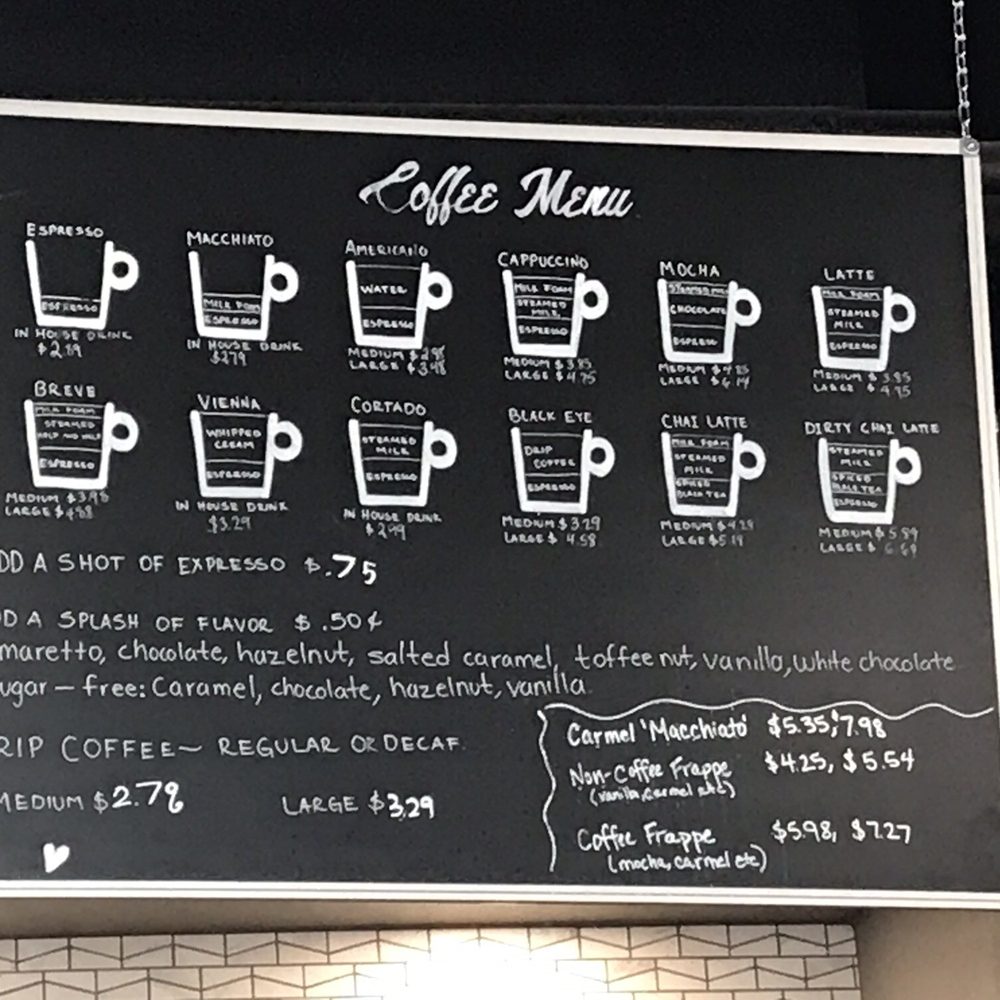 Coffee Menu
ESPRESSO
ESPRESSO
IN HOUSE DRINK
MACCHIATO
MILK FOAM
ESPRESSO
IN HOUSE DRINK
$2.79
AMERICANO
WATER
ESPRESSO
MEDIUM
LARGE $3.48
CAPPUCCINO
MILK FOAM
STEAMED
MILK
ESPRESSO
MEDIUM $3.85
LARGE $4.75
MOCHA
STEAMED MILK
CHOCOLATE
ESPRESSO
MEDIUM
LARGE
LATTE
MILK FOAM
STEAMED
MILK
ESPRESSO
MEDIUM $3.85
LARGE $4.75
BREVE
MILK FOAM
STEAMED
HALF AND HALF
ESPRESSO
MEDIUM $3.98
LARGE
VIENNA
WHIPPED
CREAM
ESPRESSO
IN HOUSE DRINK
$3.29
CORTADO
STEAMED
MILK
ESPRESSO
IN HOUSE DRINK
$2.99
BLACK EYE
DRIP
COFFEE
ESPRESSO
MEDIUM $3.29
LARGE $ 4.58
CHAI LATTE
MILK FOAM
STEAMED
MILK
SPICED
BLACK TEA
MEDIUM $4.29
LARGE $5.19
DIRTY CHAI LATTE
STEAMED
MILK
SPICED
BLACK TEA
ESPRESSO
MEDIUM $5.89
LARGE $ 6.69
DD A SHOT OF EXPRESSO $.75
D A SPLASH OF FLAVOR $.50¢
maretto, chocolate, hazelnut, salted caramel, toffee nut, vanilla, white chocolate
ugar - free: Caramel, chocolate, hazelnut, vanilla
RIP COFFEE~ REGULAR OR DECAF.
MEDIUM $2.79 LARGE $3.29
Carmel 'Macchiato' $5.35, 7.98
Non-Coffee Frappe $4.25, $5.54
(vanilla, carmel etc)
Coffee Frappe $5.98, $7.27
(mocha, carmel etc)